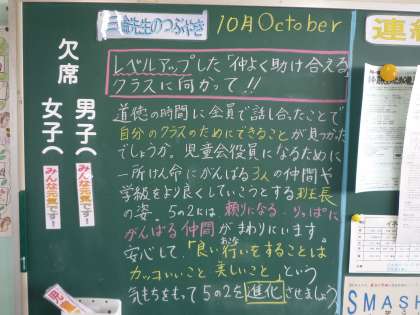 先生のつぶやき
10月October
レベルアップした「仲よく助け合える」
クラスに向かって!!
道徳の時間に全員で話し合ったことで
自分のクラスのためにできることが見つかった
でしょうか。児童会役員になるために
一所けん命にがんばる3人の仲間や
学級をより良くしていこうとする班長
の姿。5の2には頼りになる りっぱに
がんばる仲間がまわりにいます。
安心して、「良い行いをすることは
おこな
カッコいいこと 美しいこと」という
気もちをもって5の2を進化させましょう。
欠席
男子(
みんな元気です!
女子(
みんな元気です!
連
SMASH